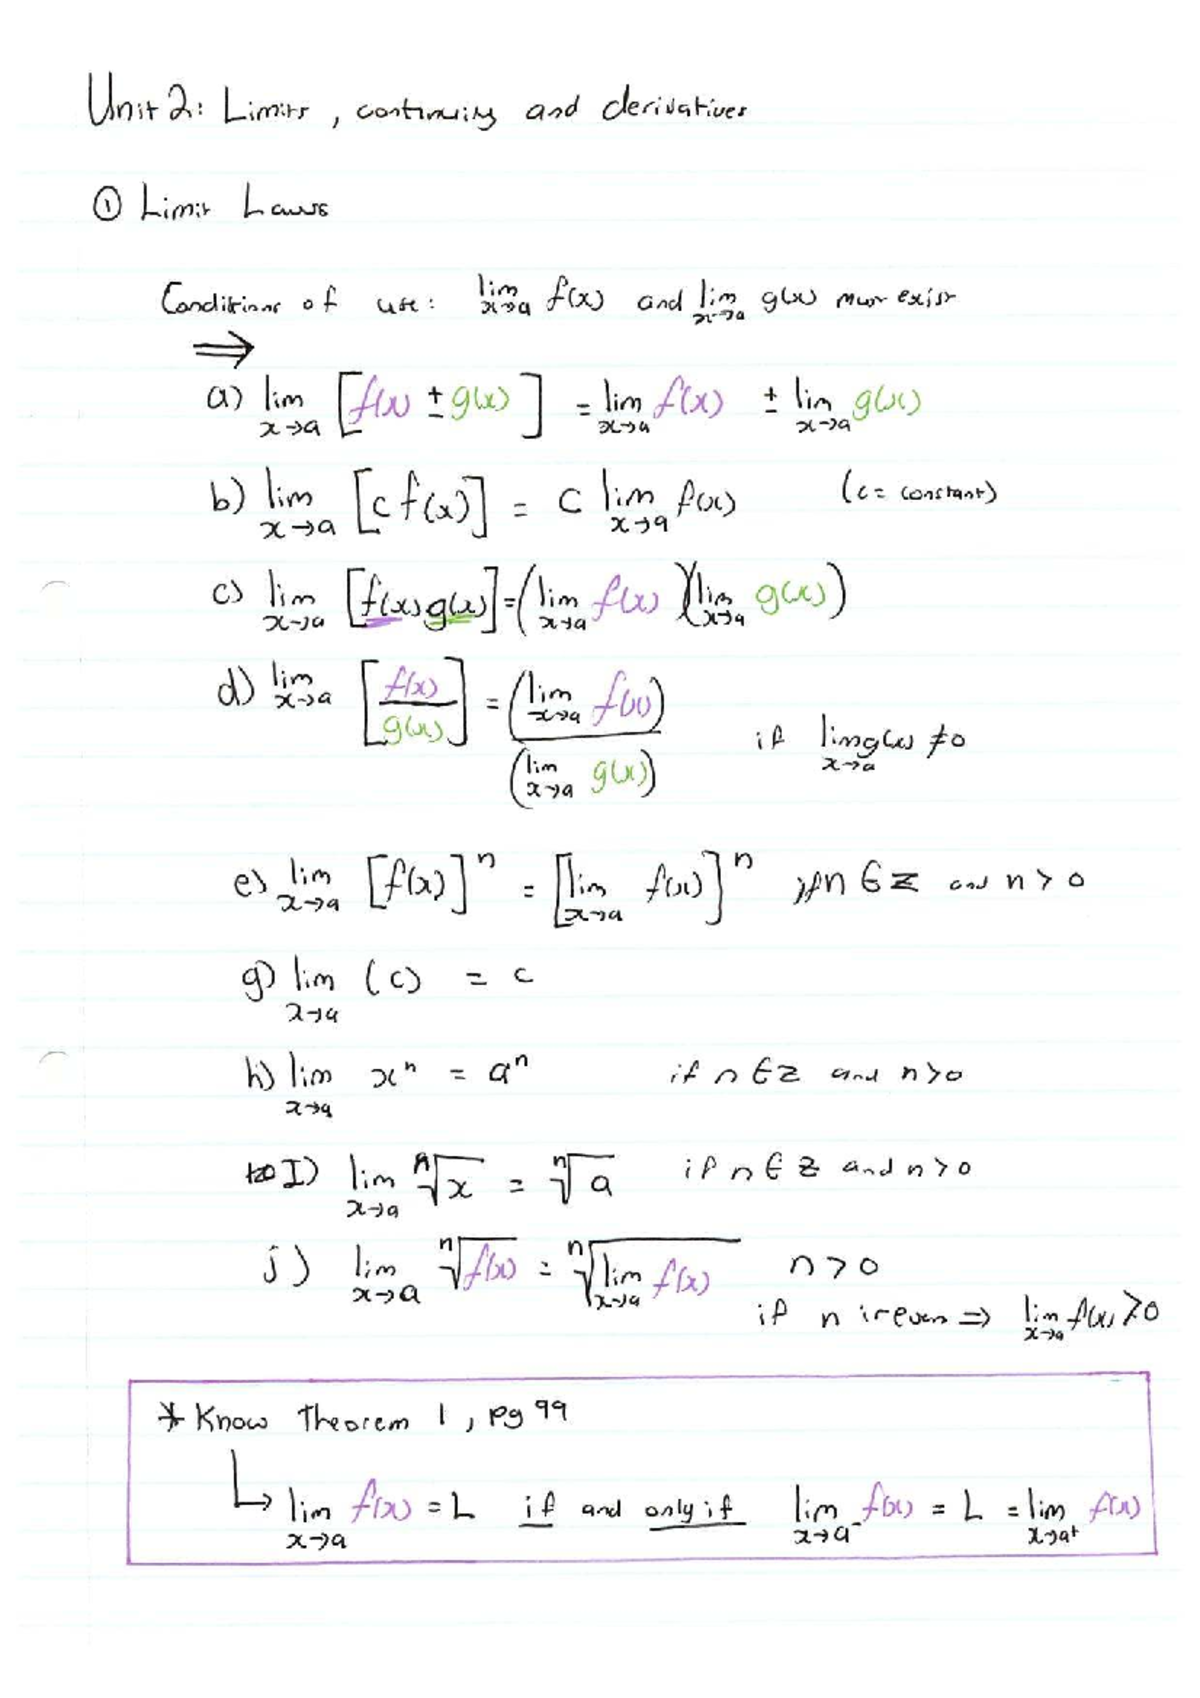 Unit 2: Limits, continuity and derivatives
① Limit Laws
Conditions of use: lim x→a f(x) and lim x→a g(x) must exist
⇒
a) lim x→a [f(x) ± g(x)] = lim x→a f(x) ± lim x→a g(x)
b) lim x→a [c f(x)] = c lim x→a f(x) (c = constant)
c) lim x→a [f(x) g(x)] = (lim x→a f(x))(lim x→a g(x))
d) lim x→a [f(x)/g(x)] = (lim x→a f(x))/(lim x→a g(x)) if lim x→a g(x) ≠ 0
e) lim x→a [f(x)]ⁿ = [lim x→a f(x)]ⁿ if n ∈ Z and n > 0
g) lim x→a (c) = c
h) lim x→a xⁿ = aⁿ if n ∈ Z and n > 0
I) lim x→a ⁿ√x = ⁿ√a if n ∈ Z and n > 0
j) lim x→a ⁿ√f(x) = ⁿ√lim x→a f(x) n > 0
if n is even ⇒ lim x→a f(x) > 0
* Know Theorem 1, pg 99
↳ lim x→a f(x) = L if and only if lim x→a⁻ f(x) = L = lim x→a⁺ f(x)